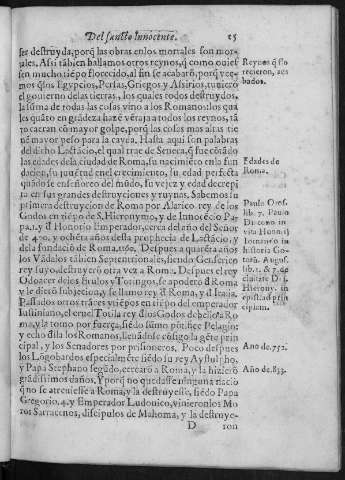 Del sancto Innocente. 25
ser destruyda, porq̃ las obras en los mortales son mor-
tales. Assi tãbien hallamos otros reynos, q̃ como ouies-
sen mucho tiẽpo florecido, al fin se acabarõ, porq̃ vee-
mos q̃ los Egypcios, Persas, Griegos y Assirios, tuuierõ
el gouierno de las tierras, los quales todos destruydos,
la suma de todas las cosas vino a los Romanos: los qua
les quãto en grãdeza hazẽ vẽtaja a todos los reynos, tã
to caeran cõ mayor golpe, porq̃ las cosas mas altas tie
nẽ mayor peso para la cayda. Hasta aqui son palabras
del dicho Lactãcio, el qual trae de Seneca, q̃ fue cõtãdo
las edades de la ciudad de Roma, su nacimiẽto en la fun
dacion, su juuẽtud en el crecimiento, su edad perfecta
quãdo se enseñoreo del mũdo, su vejez y edad decrepi
ta en sus grandes destruyciones y ruynas. Sabemos su
primera destruycion de Roma por Alarico, rey de los
Godos en tiẽpo de S. Hieronymo, y de Innocẽcio Pa-
pa. 1. y d̃ Honorio Emperador, cerca del año del Señor
de 420. y ochẽta años desta prophecia de Lactãcio, y
de la fundaciõ de Roma. 1160. Despues a quarẽta años
los Vãdalos tãbien Septentrionales, siendo Genserico
rey suyo, destruyerõ otra vez a Roma. Despues el rey
Odoacer de los Erulos y Toringos, se apoderó d̃ Roma
y le dierõ subjecion, y se llamo rey d̃ Roma, y d̃ Italia.
Passados otros trãces y tiẽpos en tiẽpo del emperador
Iustiniano, el cruel Totila rey d̃ los Godos debelo a Ro
ma, y la tomo por fuerça, siẽdo sũmo põtifice Pelagio:
y echo d̃lla los Romanos, lleuãdose cõsigo la gẽte prin
cipal, y los Senadores por prisioneros. Poco despues
los Lõgobardos especialmẽte siẽdo su rey Aystulpho,
y Papa Stephano segũdo, cercarõ a Roma, y la hizierõ
grãdissimos daños. Y porq̃ no quedasse ninguna naciõ
q̃ no se atreuiesse a Roma, y la destruyesse, siẽdo Papa
Gregorio. 4. y Emperador Ludouico, vinieron los Mo
ros Sarracenos, discipulos de Mahoma, y la destruye-
D ron
Reynos q̃ flo
recieron, aca
bados.
Edades de
Roma.
Paulo Oros.
lib. 7. Paulo
in
historia Go-
torũ. August.
lib. 1. & 7. de
ciuitate Dei.
Hieronym. in
cipium.
Año de. 752.
Año de. 833.